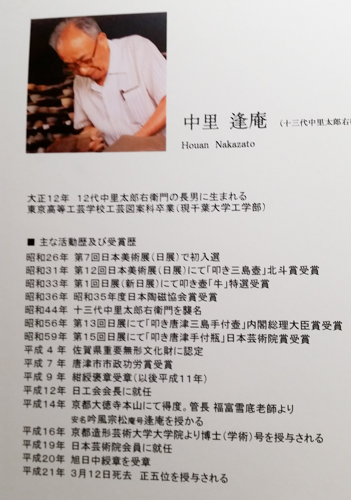 中里 逢庵 (十三代中里太郎右
Houan Nakazato
大正12年 12代中里太郎右衛門の長男に生まれる
東京高等工芸学校工芸図案科卒業(現千葉大学工学部)
■ 主な活動歴及び受賞歴
昭和26年 第7回日本美術展(日展)で初入選
昭和31年 第12回日本美術展(日展)にて「叩き三島壺」北斗賞受賞
昭和33年 第1回日展(新日展)にて叩き壺「牛」特選受賞
昭和36年 昭和35年度日本陶磁協会賞受賞
昭和44年 十三代中里太郎右衛門を襲名
昭和56年 第13回日展にて「叩き唐津三島手付壺」内閣総理大臣賞受賞
昭和59年 第15回日展にて「叩き唐津手付瓶」日本芸術院賞受賞
平成 4 年 佐賀県重要無形文化財に認定
平成 7 年 唐津市市政功労賞受賞
平成 9 年 紺綬褒章受章(以後平成11年)
平成12年 日工会会長に就任
平成14年 京都大徳寺本山にて得度。管長 福富雪底老師より
安名吟風宗松庵号逢庵を授かる
平成16年 京都造形芸術大学大学院より博士(学術)号を授与される
平成19年 日本芸術院会員に就任
平成20年 旭日中綬章を受章
平成21年 3月12日死去 正五位を授与される